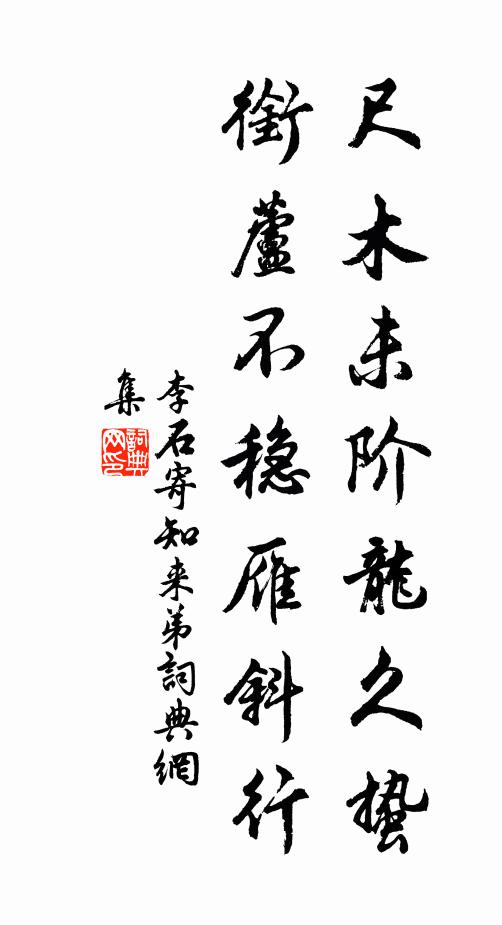 尺木未阶龍久蟄
銜蘆不稳雁斜行
李石寄知来弟詞典網
集
詞典
网印